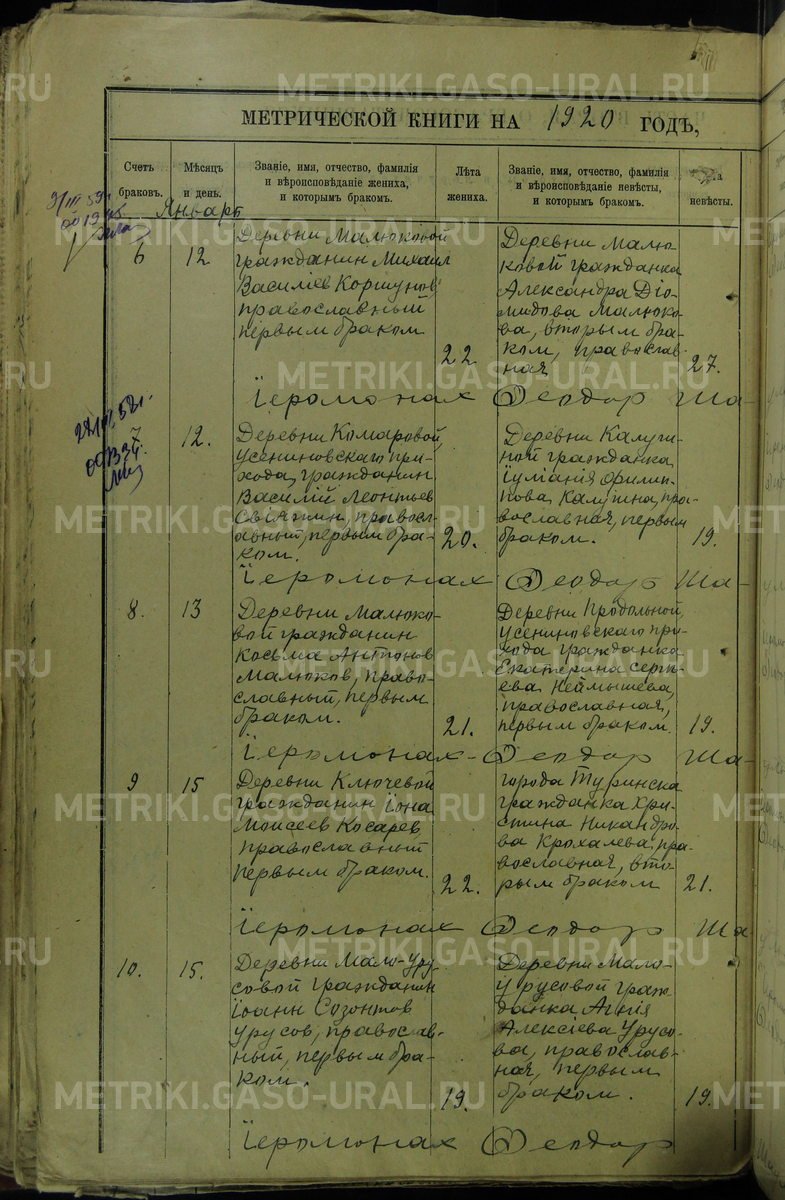 МЕТРИЧЕСКОЙ КНИГИ НА 1920 ГОДЪ,
Счетъ браковъ.
Мѣсяцъ и день.
Званіе, имя, отчество, фамилія
и вѣроисповѣданіе жениха,
и которымъ бракомъ.
Лѣта
жениха.
Званіе, имя, отчество, фамилія
и вѣроисповѣданіе невѣсты,
и которымъ бракомъ.
невѣсты.
Январь
6
12
Деревни Малюковой
гражданин Михаил
Василіев Коршунов
православный
первым браком
22
Деревни Малю-
ковой гражданка
Александра Діо-
мидова Малюко-
ва, вторым бра-
ком, православ-
ная
27.
Іеромонах Ѳеодор Ша-
7
12.
Деревни Комаровой,
Усениновскаго при-
хода, гражданин
Василій Леонтьев
православный, первым бра-
ком.
20.
Деревни Калуги-
ной гражданка
Іуліанія Филип-
пова Калугина, пра-
вославная, первым
браком.
19.
Іеромонах Ѳеодор Ша-
8.
13
Деревни Малюко-
вой гражданин
Косьма Антонов
Малюков, право-
славный, первым
браком.
21.
Деревни Продольной,
Усениновскаго при-
хода гражданка
Екатерина Серге-
ева Неймышева,
православная,
первым браком.
19.
Іеромонах Ѳеодор Ша-
9
15
Деревни Ключевой
гражданин Іона
Моисеев Косарев
православный
первым браком.
22.
города Туринска
гражданка Хри-
стина Никандро-
ва Крохалева, пра-
вославная, вто-
рым браком
21.
Іеромонах Ѳеодор Ша
10.
15.
Деревни Мало-Уру-
совой гражданин
Іоанн Созонтов
Урусов, православ-
ный, первым бра-
ком.
19.
Деревни Мало-
Урусовой граж-
данка Агнія
Алексіева Урусо-
ва, православ-
ная, первым
браком.
19.
Іеромонах Ѳеодор
METRIKI.GASO-URAL.RU